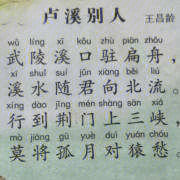 卢溪别人
王昌龄
wǔ líng xī kǒu zhù piān zhōu
武陵溪口驻扁舟，
xī shuǐ suí jūn xiàng běi liú
溪水随君向北流。
xíng dào jīng mén shàng sān xiá
行到荆门上三峡，
mò jiāng gū yuè duì yuán chóu
莫将孤月对猿愁。